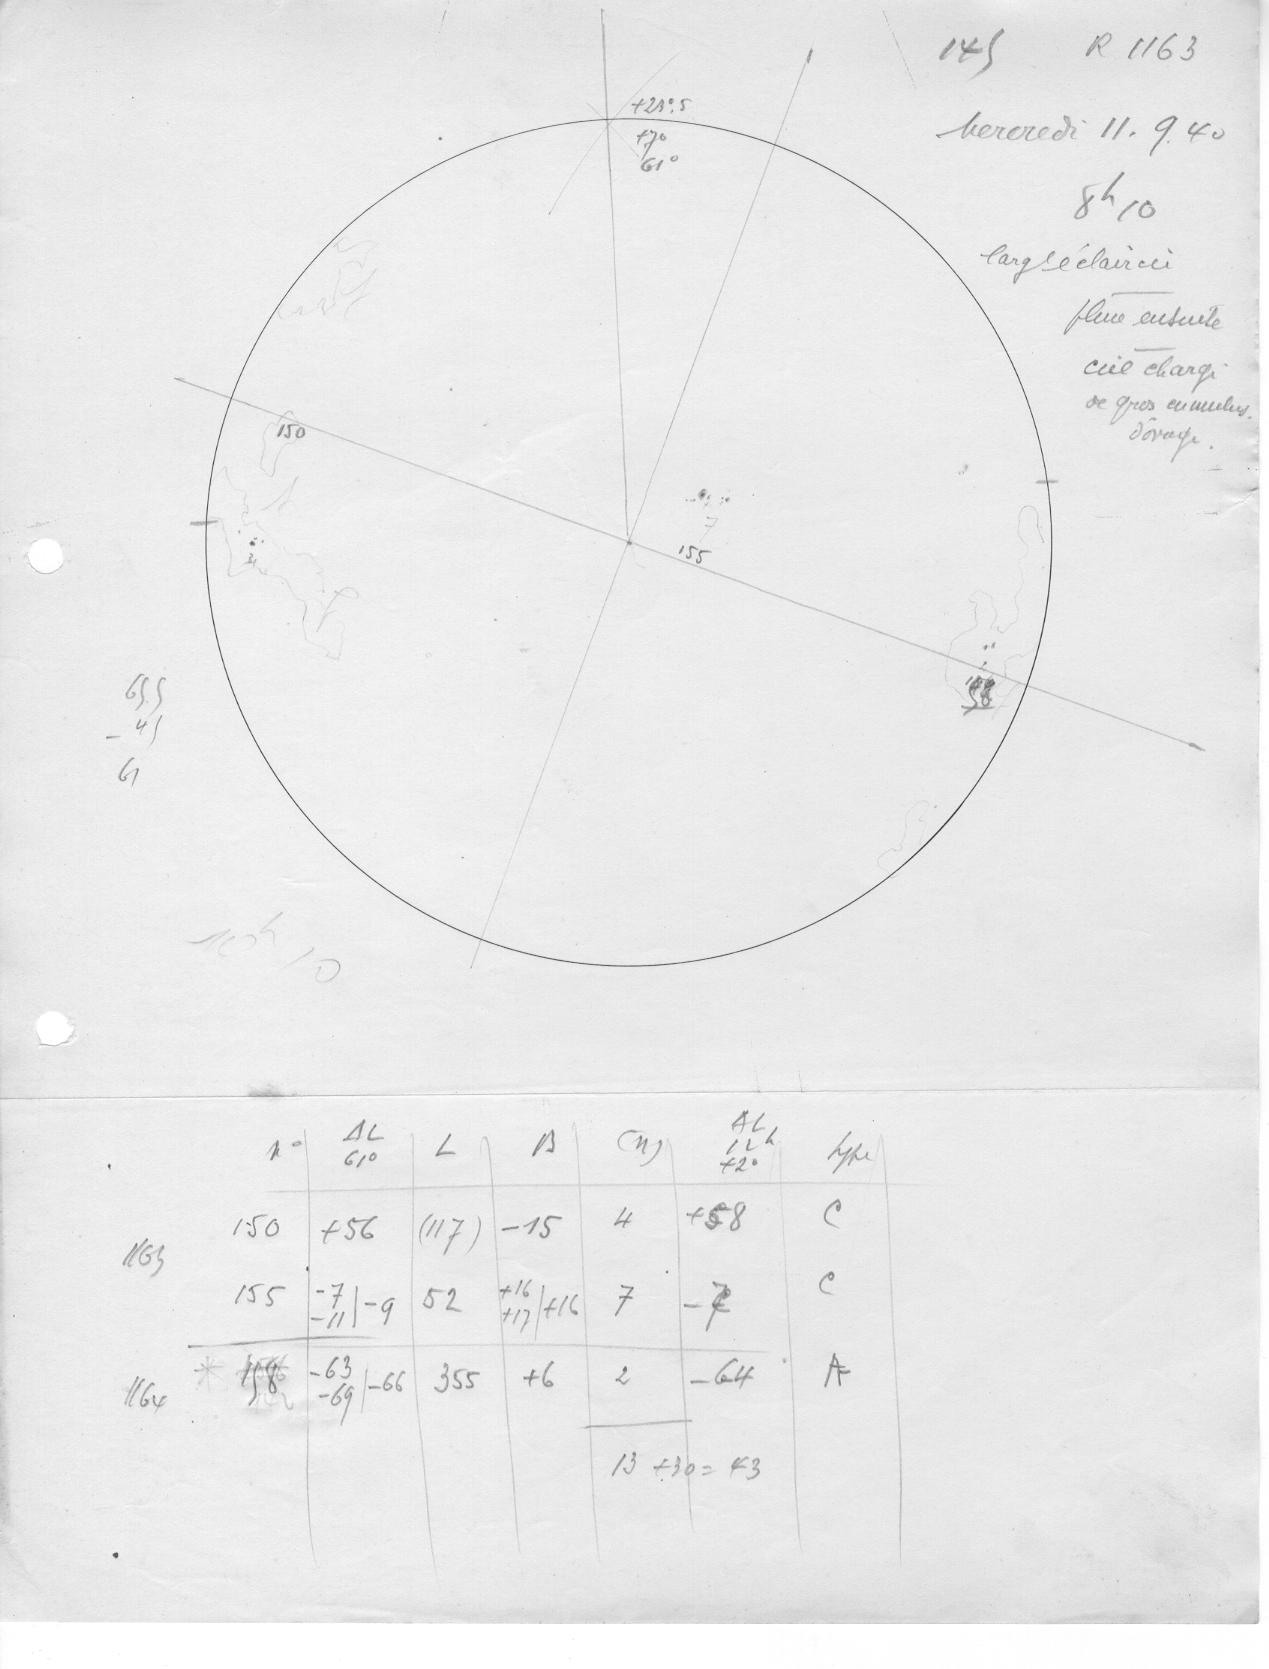 145 R 1163
Mercredi 11. 9. 40
8h 10
large éclaircie
pluie ensuite
ciel chargé
de gros cumulus
d'orage.
+23°.5
+7°
61°
150
7
155
158
65.5
- 45
61
10h 10
n° ΔL 61° L B (n) ΔL 12h +2° type
1163
150 +56 (117) -15 4 +58 C
155 -7 -11 | -9 52 +16 +17 | +16 7 -7 C
1164
158 -63 -69 | -66 355 +6 2 -64 A
13 +30 = 43